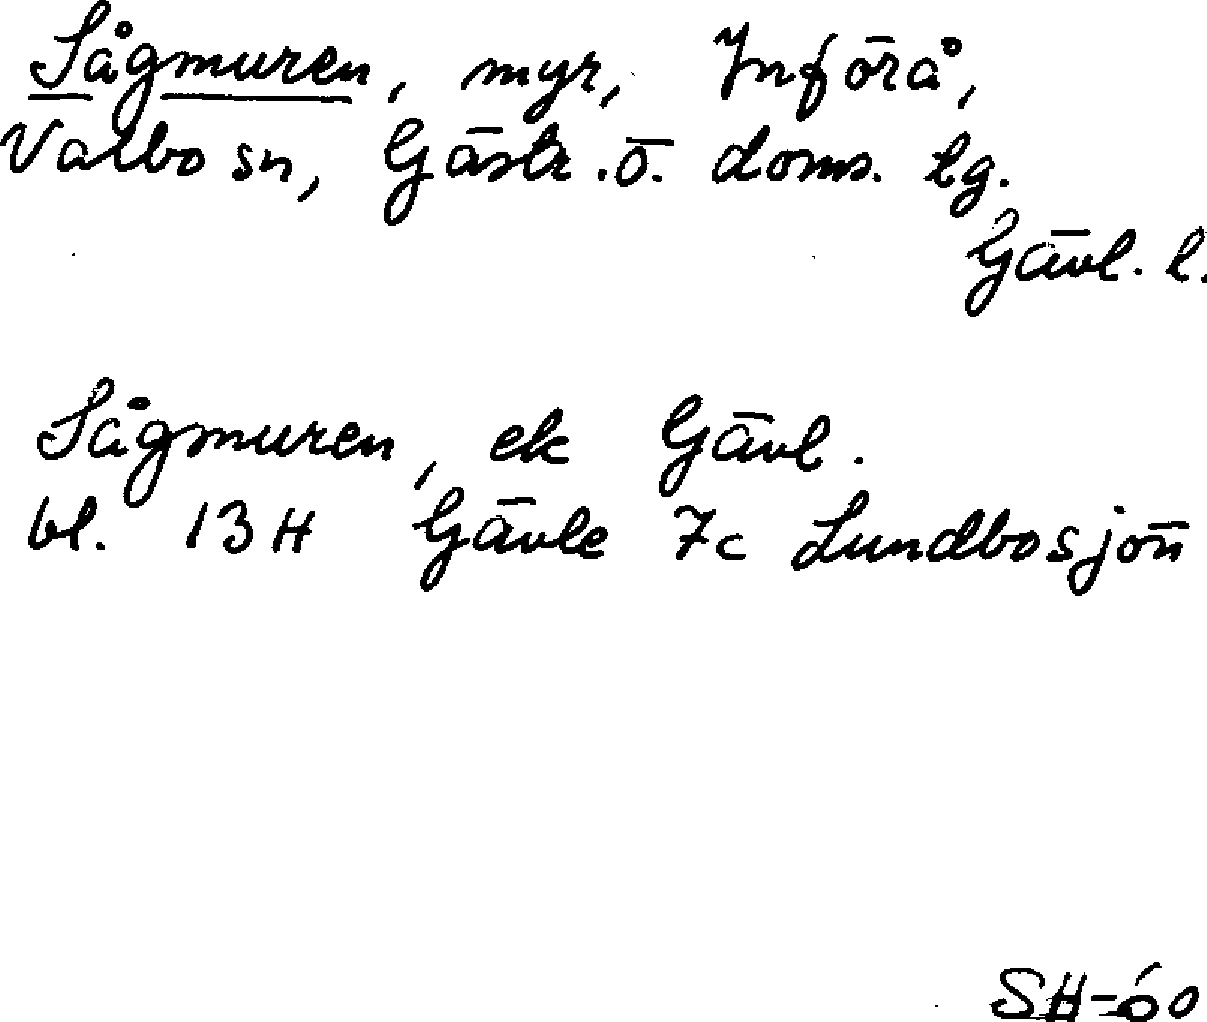 Sågmuren, myr, Införå,
Valbo sn, Gästr. ö. doms. lg.
Gävl. l.
Sågmuren, ek Gävl.
bl. 13H Gävle 7c Lundbosjön
SH-60